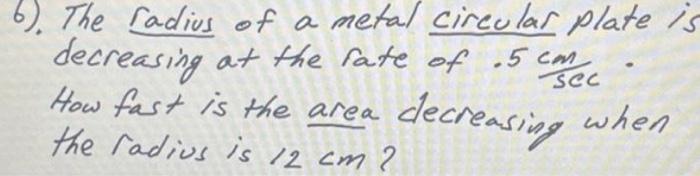 6). The radius of a metal circular plate is
decreasing at the rate of .5 cm/sec .
How fast is the area decreasing when
the radius is 12 cm?